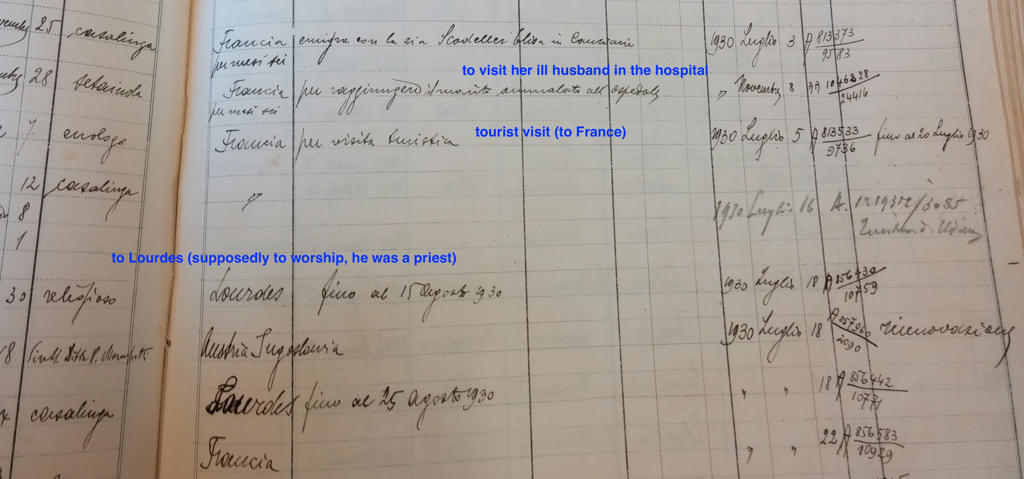 25 casalinga Francia emigra con la zia Scodeller Elisa in 1930 Luglio 3 A 813373
per mesi sei 9583
to visit her ill husband in the hospital
28 setaiuola Francia per raggiungere il marito ammalato all'ospedale " Novembre 8 AA 1046228
per mesi sei 24416
tourist visit (to France)
7 enologo Francia per visita turistica 1930 Luglio 5 A 813533 fino al 20 Luglio 1930
9736
12 casalinga " 1930 Luglio 16 A.
8
1
to Lourdes (supposedly to worship, he was a priest)
30 religioso Lourdes fino al 15 Agosto 930 1930 Luglio 18 A 856430
10759
18 Austria Jugoslavia 1930 Luglio 18 A 057960 rinnovazione
2090
casalinga Lourdes fino al 25 agosto 930 " " 18 A 856442
10771
Francia " " 22 A 856583
10929